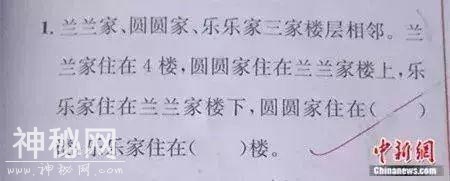 1. 兰兰家、圆圆家、乐乐家三家楼层相邻。兰
兰家住在4楼,圆圆家住在兰兰家楼上,乐
乐家住在兰兰家楼下,圆圆家住在( )
楼,乐乐家住在( )楼。
神秘网
WWW.WENMI.COM
中新网
Chinanews.com